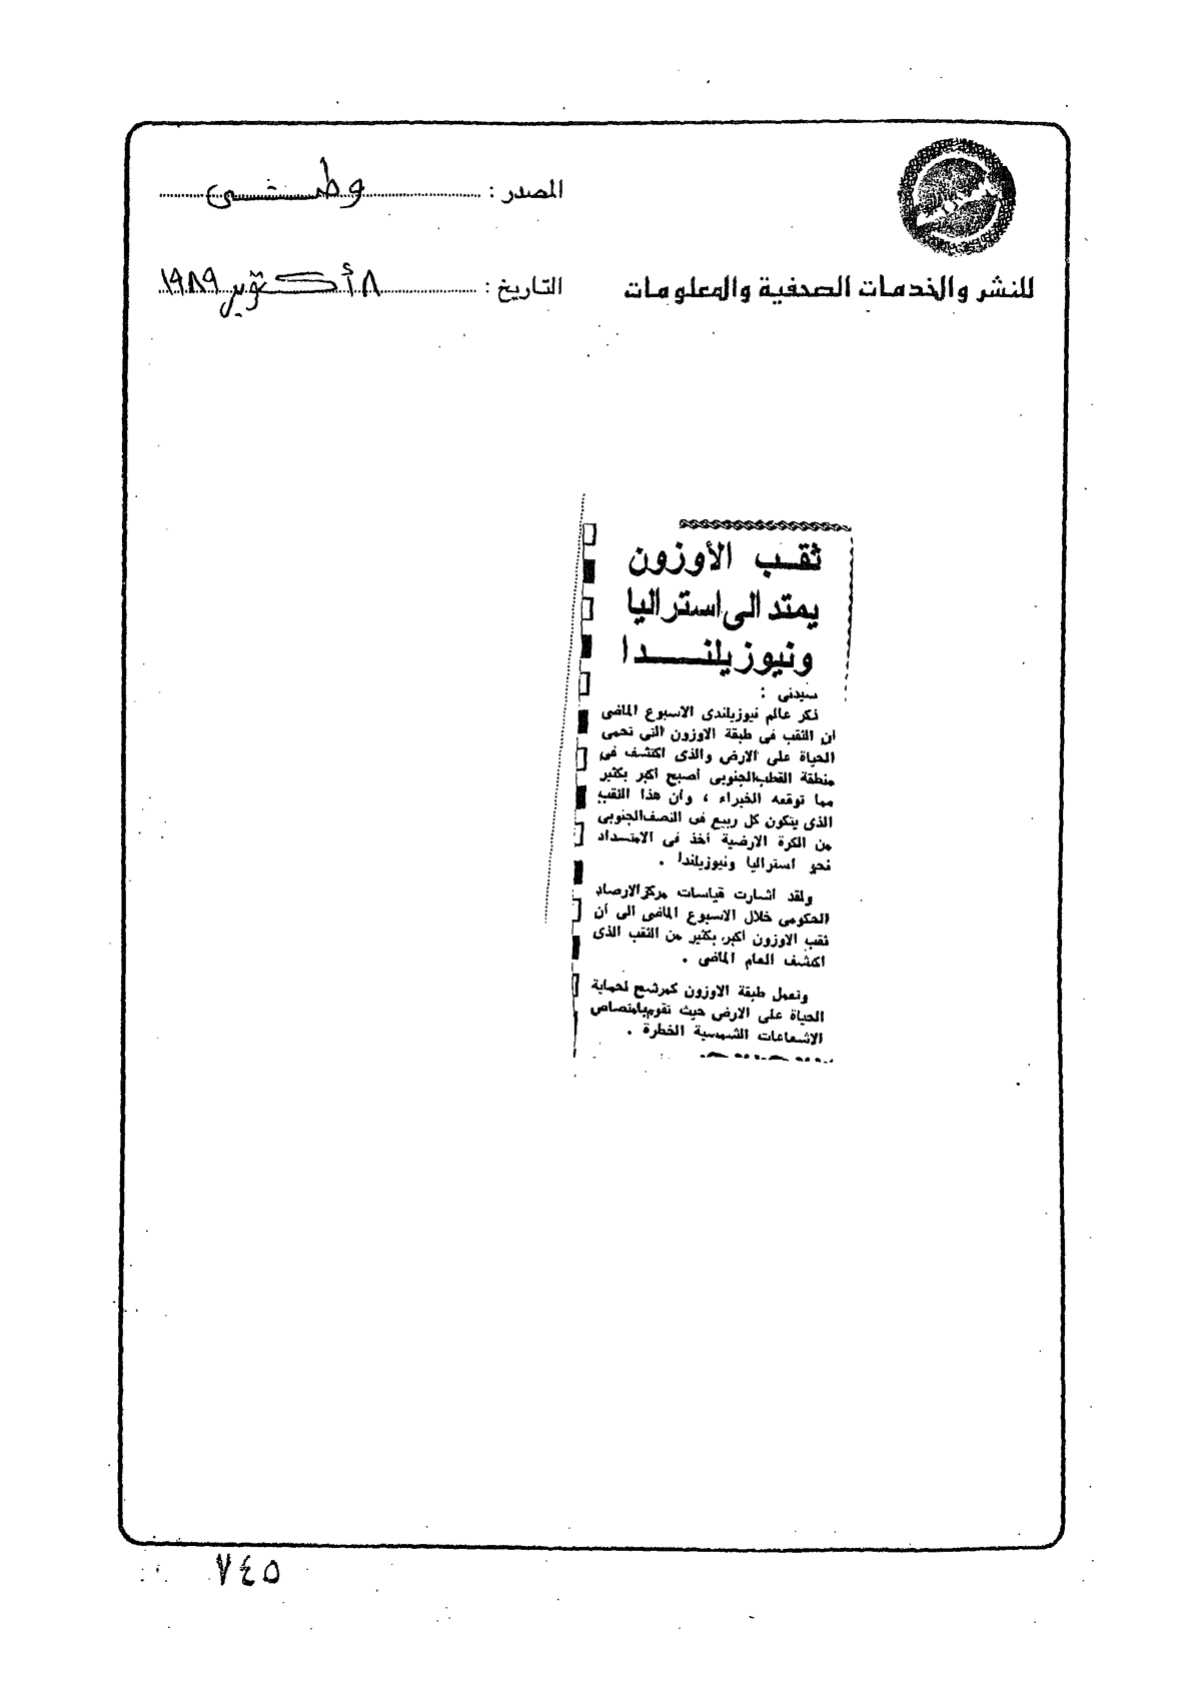 المصدر : وطنى
للنشر والخدمات الصحفية والمعلومات
التاريخ : ٨ أكتوبر ١٩٨٩
ثقب الأوزون
يمتد الى استراليا
ونيوزيلندا
سيدنى :
ذكر عالم نيوزيلندى الاسبوع الماضى
ان الثقب فى طبقة الاوزون التى تحمى
الحياة على الارض والذى اكتشف فى
منطقة القطب الجنوبى أصبح أكبر بكثير
مما توقعه الخبراء ، وأن هذا الثقب
الذى يتكون كل ربيع فى النصف الجنوبى
من الكرة الارضية أخذ فى الامتداد
نحو استراليا ونيوزيلندا .
ولقد أشارت قياسات مركز الارصاد
الحكومى خلال الاسبوع الماضى الى أن
ثقب الاوزون أكبر بكثير من الثقب الذى
اكتشف العام الماضى .
وتعمل طبقة الاوزون كمرشح لحماية
الحياة على الارض حيث تقوم بامتصاص
الاشعاعات الشمسية الخطرة .
٧٤٥